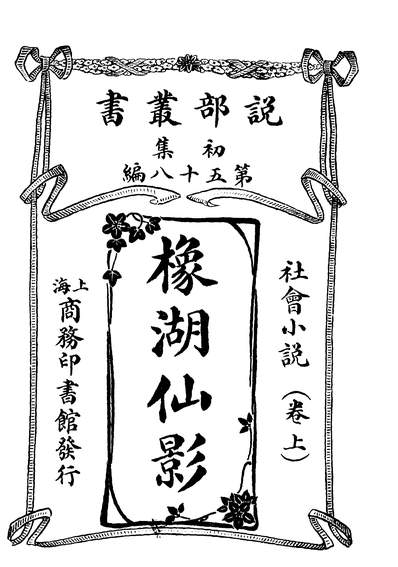 説部叢書
初集
第五十八編
社會小説（卷上）
橡湖仙影
上海商務印書館發行